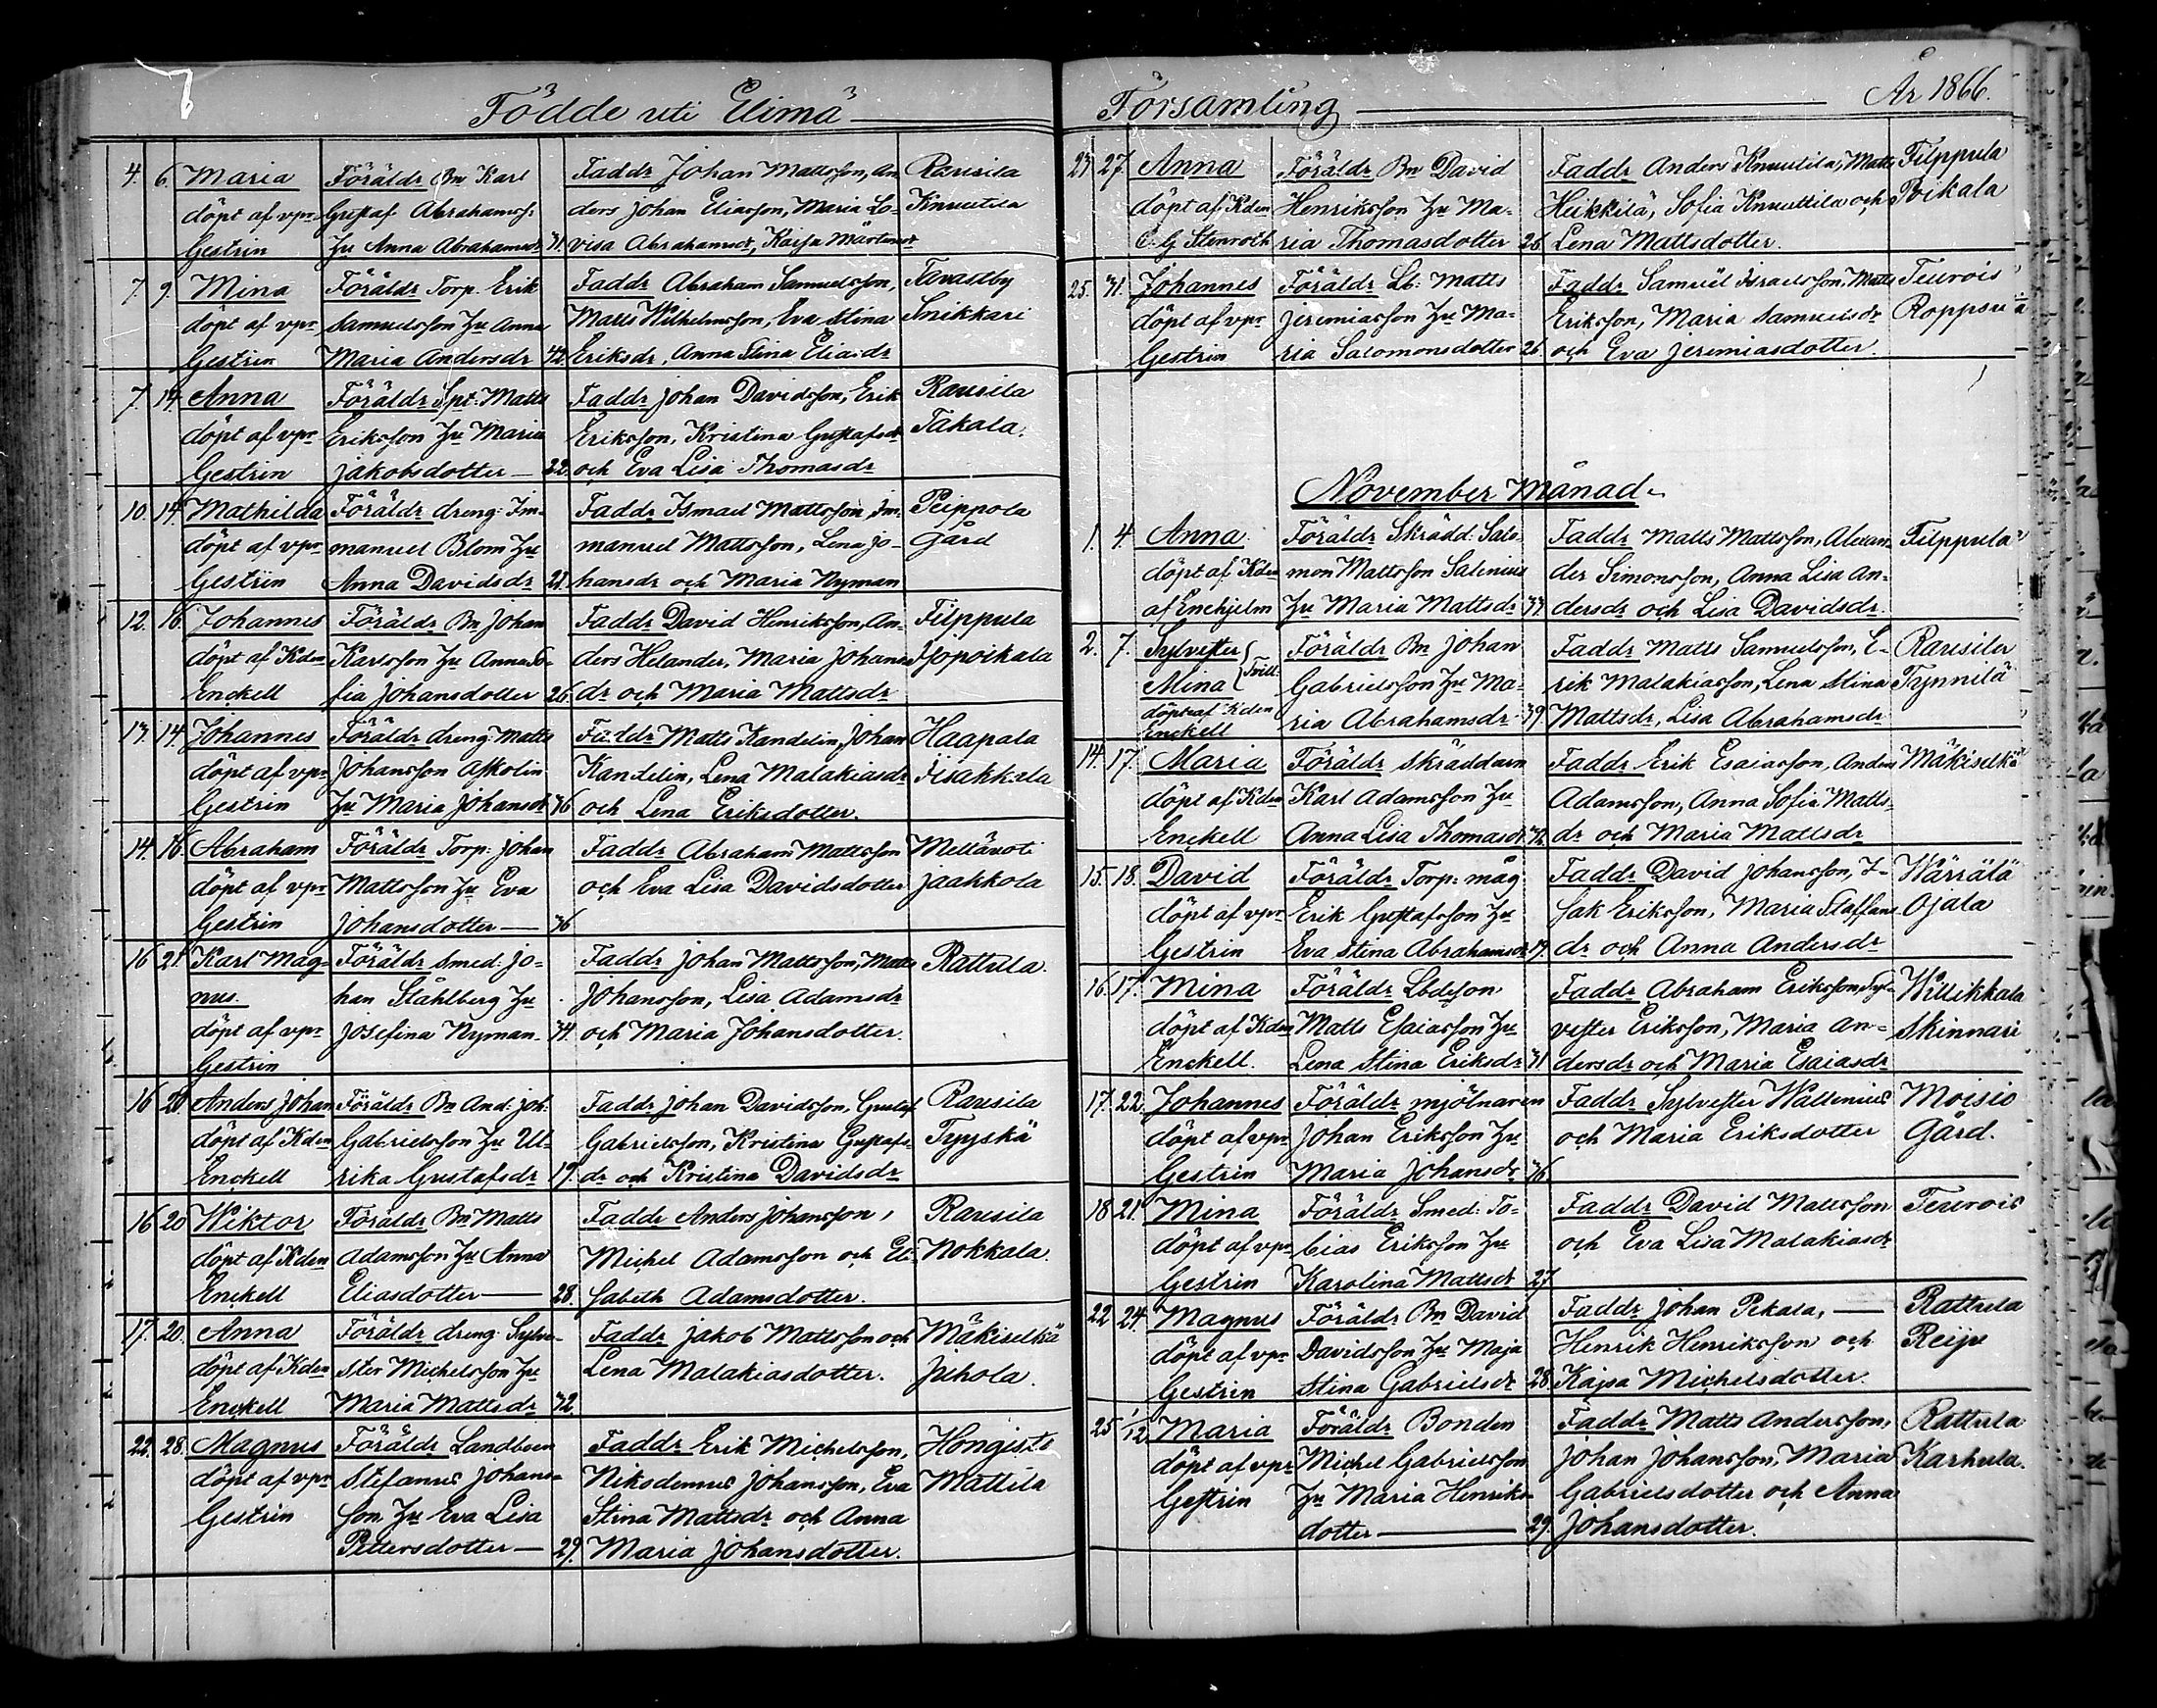 Födde uti Elimä
4. 6. Maria Föräldr Bn Karl Faddr Johan Mattsson, An- Rausila
döpt af vpr Gustaf Abrahamss: ders Johan Eliasson, Maria Lo- Knuutila
Gestrin Hu Anna Abrahamsdr 31. visa Abrahamsdr, Kaisa Mårtensdr
7. 9. Mina Föräldr Torp. Erik Faddr Abraham Samuelsson, Tavastby
döpt af vpr Samuelsson Hu Anna Matts Wilhelmsson, Eva Stina Snikkari
Gestrin Maria Andersdr 42. Eriksdr, Anna Stina Eliasdr
7. 14. Anna Föräldr Spt: Matts Faddr Johan Davidsson, Erik Rausila
döpt af vpr Eriksson Hu Maria Eriksson, Kristina Gustafsdr Takala.
Gestrin Jakobsdotter — 22. och Eva Lisa Thomasdr
10. 14. Mathilda Föräldr dreng: Im- Faddr Ismael Mattsson, Im- Peippola
döpt af vpr manuel Blom Hu manuel Mattsson, Lena Jo- Gård
Gestrin Anna Davidsdr 23. hansdr och Maria Nyman
12. 16. Johannes Föräldr Bn Johan Faddr David Henriksson, An- Filppula
döpt af Kden Karlsson Hu Anna So- ders Helander, Maria Johans Yöpoikala
Enckell fia Johansdotter 26. dr och Maria Mattsdr
13. 14. Johannes Föräldr dreng Matts Faddr Matts Kandelin, Johan Haapala
döpt af vpr Johansson Askolin Kandelin, Lena Malakiasdr Iisakkala
Gestrin Hu Maria Johansdr 36 och Lena Eriksdotter.
14. 16. Abraham Föräldr Torp: Johan Faddr Abraham Mattsson Mettävoti
döpt af vpr Mattsson Hu Eva och Eva Lisa Davidsdotter Jaakkola
Gestrin Johansdotter — 36
16 21. Karl Mag- Föräldr Smed: Jo- Faddr Johan Mattsson, Matts Rattula.
nus. han Ståhlberg Hu Johansson, Lisa Adamsdr
döpt af vpr Josefina Nyman. 34. och Maria Johansdotter.
Gestrin
16 20 Anders Johan Föräldr Bn And: Joh: Faddr Johan Davidsson, Gustaf Rausila
döpt af Kden Gabrielsson Hu Ul- Gabrielsson, Kristina Gustafs- Tyyskä
Enckell rika Gustafsdr 19. dr och Kristina Davidsdr
16 20 Wiktor Föräldr Bn Matts Faddr Anders Johansson, Rausila
döpt af Kden Adamsson Hu Anna Michel Adamsson och Eli- Nokkala.
Enckell Eliasdotter — 28. sabeth Adamsdotter.
17. 20. Anna Föräldr dreng: Sylve- Faddr Jakob Mattsson och Mäkiselkä
döpt af Kden ster Michelsson Hu Lena Malakiasdotter. Juhola.
Enckell Maria Mattsdr 32.
22. 28. Magnus Föräldr Landboen Faddr Erik Michelsson, Hongisto
döpt af vpr Stefanus Johans- Nikodemus Johansson, Eva Mattila
Gestrin son Hu Eva Lisa Stina Mattsdr och Anna
Pettersdotter — 29. Maria Johansdotter.
Församling — År 1866.
23 27. Anna Föräldr Bn David Faddr Anders Knuutila, Matts Filppula
döpt af Kden Henriksson Hu Ma- Heikkilä, Sofia Knuuttila och Poikala
C. G Stenroth ria Thomasdotter 26 Lena Mattsdotter.
25. 31. Johannes Föräldr Lb: Matts Faddr Samuel Israelsson, Matts Teurois
döpt af vpr Jeremiasson Hu Ma- Eriksson, Maria Samuelsdr
Gestrin ria Salomonsdotter 26. och Eva Jeremiasdotter.
November Månad.
1. 4. Anna Föräldr Skrädd: Salo- Faddr Matts Mattsson, Alexan- Filppula
döpt af Kden mon Mattsson Salenius der Simonsson, Anna Lisa An-
af Enehjelm Hu Maria Mattsdr 33 dersdr och Lisa Davidsdr.
2. 7. Sylvester Föräldr Bn Johan Faddr Matts Samuelsson, E- Rausila
Mina } Tvill. Gabrielsson Hu Ma- rik Malakiasson, Lena Stina Tynnilä
döpt af Kden Enckell ria Abrahamsdr 39. Mattsdr, Lisa Abrahamsdr
14. 17. Maria Föräldr Skräddaren Faddr Erik Esaiasson, Anders Mäkiselkä
döpt af Kden Karl Adamsson Hu Adamsson, Anna Sofia Matts
Enckell Anna Lisa Thomasdr 32. dr och Maria Mattsdr
15. 18. David Föräldr Torp: måg Faddr David Johansson, I- Wärrälä
döpt af vpr Erik Gustafsson Hu sak Eriksson, Maria Staffans Ojala
Gestrin Eva Stina Abrahamsdr 19. dr och Anna Andersdr
16. 17. Mina Föräldr Lbdeson Faddr Abraham Eriksson, Syl- Willikkala
döpt af Kden Matts Esaiasson Hu vester Eriksson, Maria An- Skinnari
Enckell. Lena Stina Eriksdr 31 dersdr och Maria Esaiasdr
17. 22. Johannes Föräldr mjölnaren Faddr Sylvester Wallenius Moisio
döpt af vpr Johan Eriksson Hu och Maria Eriksdotter Gård.
Gestrin Maria Johansdr 36
18 21. Mina Föräldr Smed: To- Faddr David Mattsson Teurois
döpt af vpr bias Eriksson Hu och Eva Lisa Malakiasdr
Gestrin Karolina Mattsdr 27.
22 24. Magnus Föräldr Bn David Faddr Johan Pekala, — Rattula
döpt af vpr Davidsson Hu Maja Henrik Henriksson och Reiju
Gestrin Stina Gabrielsdr 28. Kajsa Michelsdotter.
25 1/12 Maria Föräldr Bonden Faddr Matts Andersson, Rattula
döpt af vpr Michel Gabrielsson Johan Johansson, Maria Karhula.
Gestrin Hu Maria Henriks- Gabrielsdotter och Anna
dotter — 29. Johansdotter.